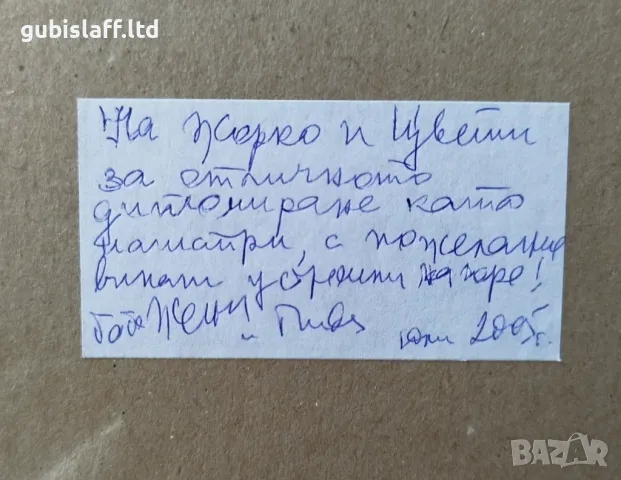 gubislaff.ltd
На Жорко и Цвети
за отличното
дипломиране като
магистри, с пожелание
винаги устремени нагоре!
баба Жени
и юли 2005г.
BAZAR